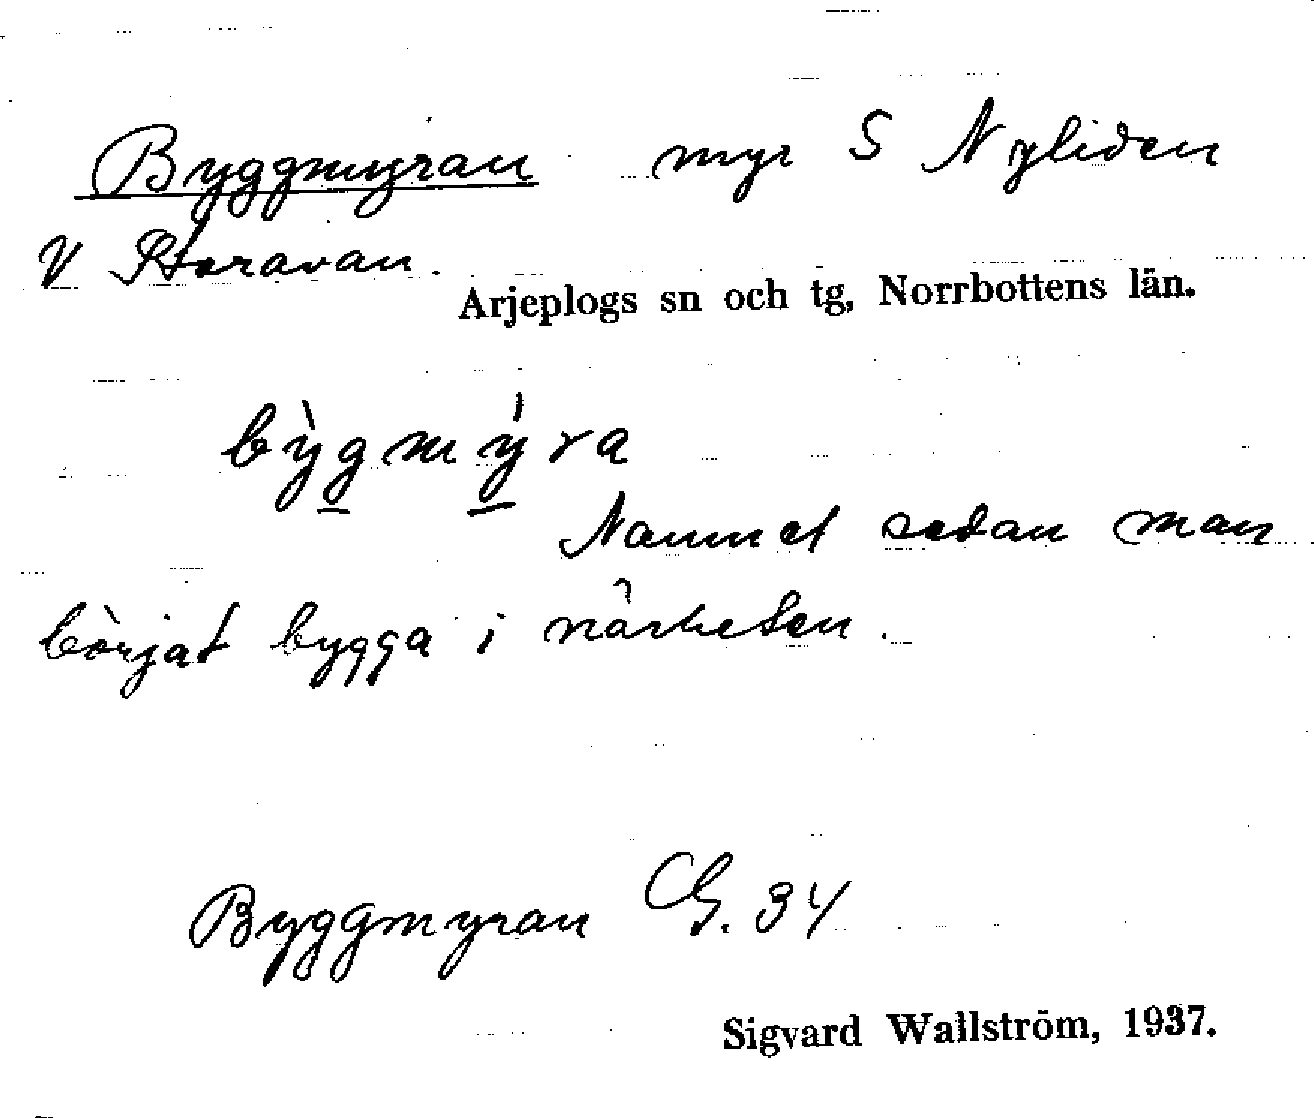 Byggmyran myr S Nyliden
V Storavan.
Arjeplogs sn och tg, Norrbottens län.
bỳgmýra
Namnet sedan man
börjat bygga i närheten.
Byggmyran G. 34
Sigvard Wallström, 1937.